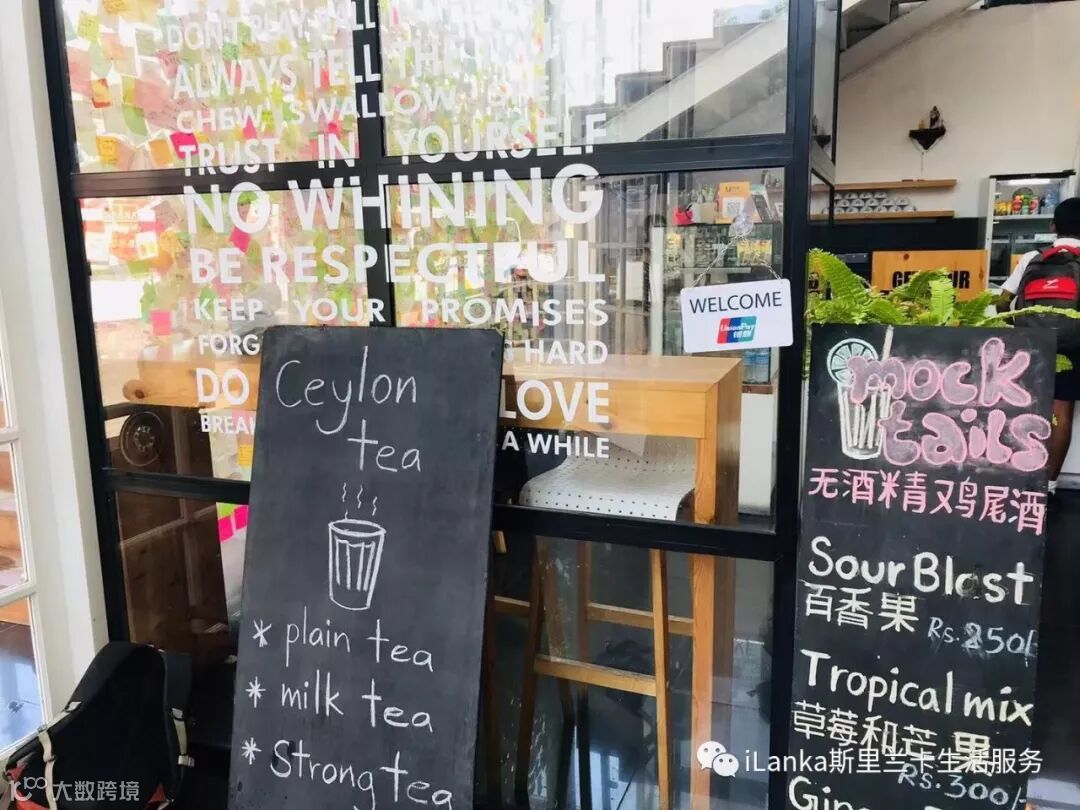 DON'T PLAY BALL
ALWAYS TELL THE TRUTH
CHEW, SWALLOW, SPEAK
TRUST IN YOURSELF
NO WHINING
BE RESPECTFUL
KEEP YOUR PROMISES
HARD
DO
LOVE
A WHILE
WELCOME
UnionPay
银联
Ceylon
tea
* plain tea
* milk tea
* Strong tea
mock
tails
无酒精鸡尾酒
Sour Blast
百香果 Rs.250/-
Tropical mix
草莓和芒果
Rs.300/-
iLanka斯里兰卡生活服务
大数跨境